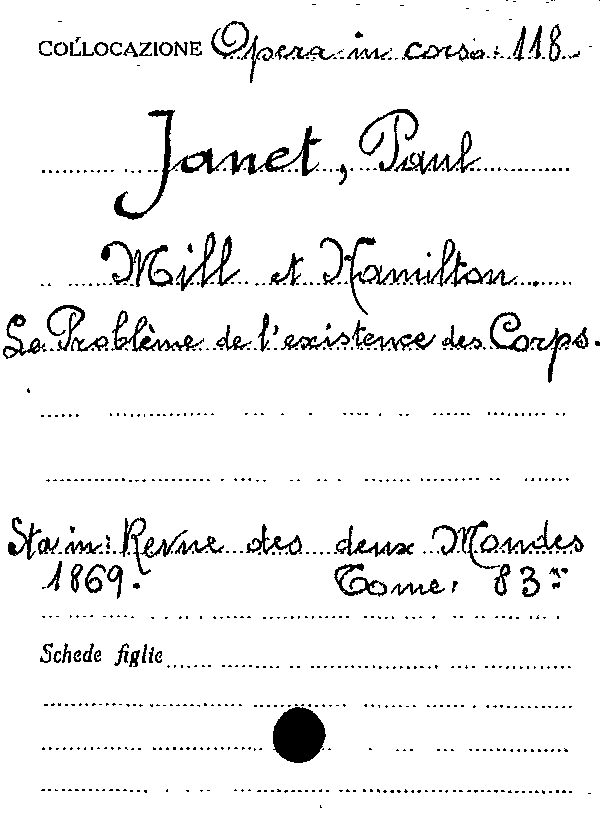 COLLOCAZIONE Opera in corso: 118
Janet, Paul
Mill et Hamilton.
Le Problème de l'existence des Corps.
Sta in: Revue des deux Mondes
1869. Tome: 83
Schede figlie